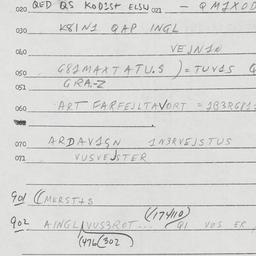 020 QED QS KODIST ELSU 021 - QM1XOD
030 K8IN1 QAP INGL
040 VEJN1N
050 G81MAXTATU.S ) = TUV1S
051 GRA-Z
060 ART FARFEJLTAVORT = 1B3RG
070 ARDAV1GN 1N3RVEJSTUS
071 VUSVEJSTER
901 ((MERSTTS
902 AINGL/VUS3ROT... (174/110) QI VOS ER
(476(302)